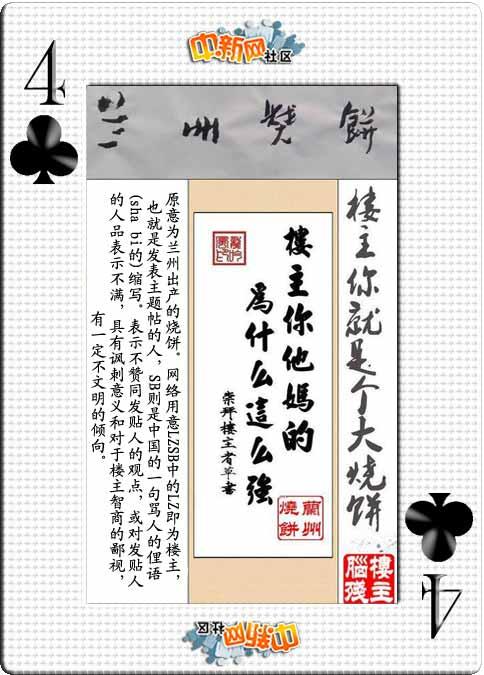 中新网社区
4
兰州燒餅
樓主你就是个大烧餅
樓主腦殘
樓主你他媽的
為什么這么強
崇拜樓主者草書
蘭州燒餅
原意为兰州出产的烧饼。网络用意LZSB中的LZ即为楼主，
也就是发表主题帖的人，SB则是中国的一句骂人的俚语
(sha bi的)缩写。表示不赞同发贴人的观点，或对发贴人
的人品表示不满，具有讽刺意义和对于楼主智商的鄙视，
有一定不文明的倾向。
4
中新网社区